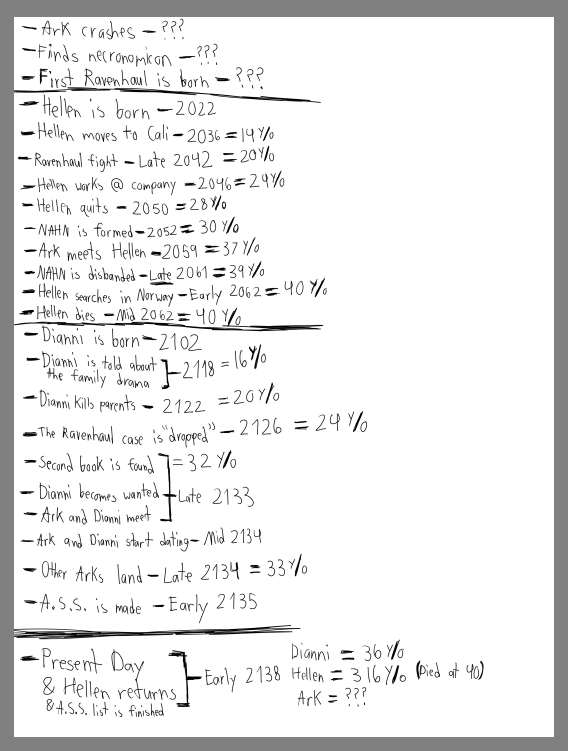 - Ark crashes - ???
- Finds necronomicon - ???
- First Ravenhaul is born - ???
- Hellen is born - 2022
- Hellen moves to Cali - 2036 = 14 Y/o
- Ravenhaul fight - Late 2042 = 20 Y/o
- Hellen works @ company - 2046 = 24 Y/o
- Hellen quits - 2050 = 28 Y/o
- NAHN is formed - 2052 = 30 Y/o
- Ark meets Hellen - 2059 = 37 Y/o
- NAHN is disbanded - Late 2061 = 39 Y/o
- Hellen searches in Norway - Early 2062 = 40 Y/o
- Hellen dies - Mid 2062 = 40 Y/o
- Dianni is born - 2102
- Dianni is told about
the family drama ] - 2118 = 16 Y/o
- Dianni kills parents - 2122 = 20 Y/o
- The Ravenhaul case is "dropped" - 2126 = 24 Y/o
- Second book is found = 32 Y/o
- Dianni becomes wanted - Late 2133
- Ark and Dianni meet
- Ark and Dianni start dating - Mid 2134
- Other Arks land - Late 2134 = 33 Y/o
- A.S.S. is made - Early 2135
- Present Day
& Hellen returns
& A.S.S. list is finished
- Early 2138
Dianni = 36 Y/o
Hellen = 316 Y/o (Died at 40)
Ark = ???